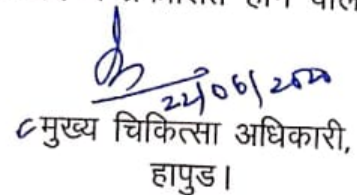 22/06/2020
मुख्य चिकित्सा अधिकारी,
हापुड।